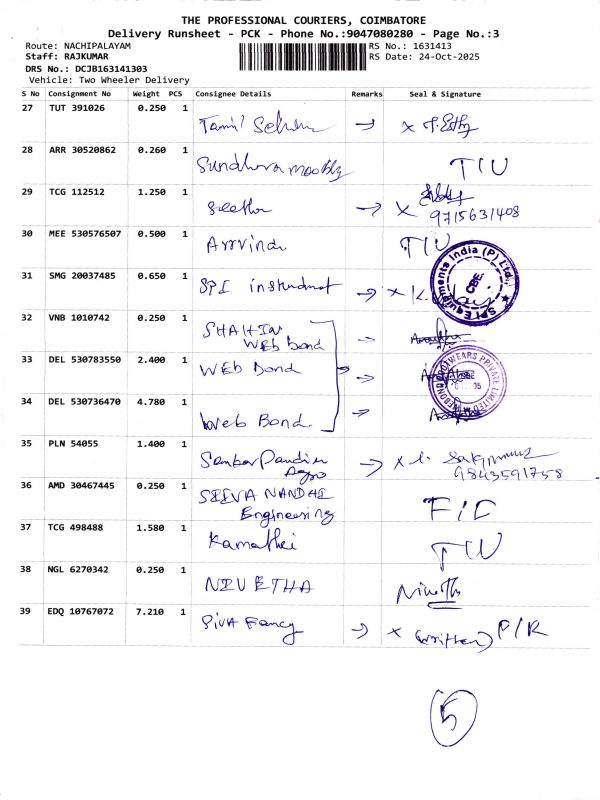 THE PROFESSIONAL COURIERS, COIMBATORE
Delivery Runsheet - PCK - Phone No.:9047080280 - Page No.:3
Route: NACHIPALAYAM
RS No.: 1631413
Staff: RAJKUMAR
RS Date: 24-Oct-2025
DRS No.: DCJB163141303
Vehicle: Two Wheeler Delivery
S No Consignment No Weight PCS Consignee Details Remarks Seal & Signature
27 TUT 391026 0.250 1 Tamil →
28 ARR 30520862 0.260 1 TIU
29 TCG 112512 1.250 1 Seetha → X
9715631408
30 MEE 530576507 0.500 1 Arvind TIU
31 SMG 20037485 0.650 1 SPI → X
SPI Equipments India (P) Ltd. ★ CBE
32 VNB 1010742 0.250 1 SHAHIN →
Web bond
33 DEL 530783550 2.400 1 Web Bond →
WEBOND FOOTWEARS PRIVATE LIMITED
34 DEL 530736470 4.780 1 Web Bond →
35 PLN 54055 1.400 1 Pandian → X
Agro 9843591758
36 AMD 30467445 0.250 1 SELVA NANDHI
Engineering
37 TCG 498488 1.580 1 TIU
38 NGL 6270342 0.250 1 NIVETHA Nivetha
39 EDQ 10767072 7.210 1 Siva Fancy → X (written) P/R
5